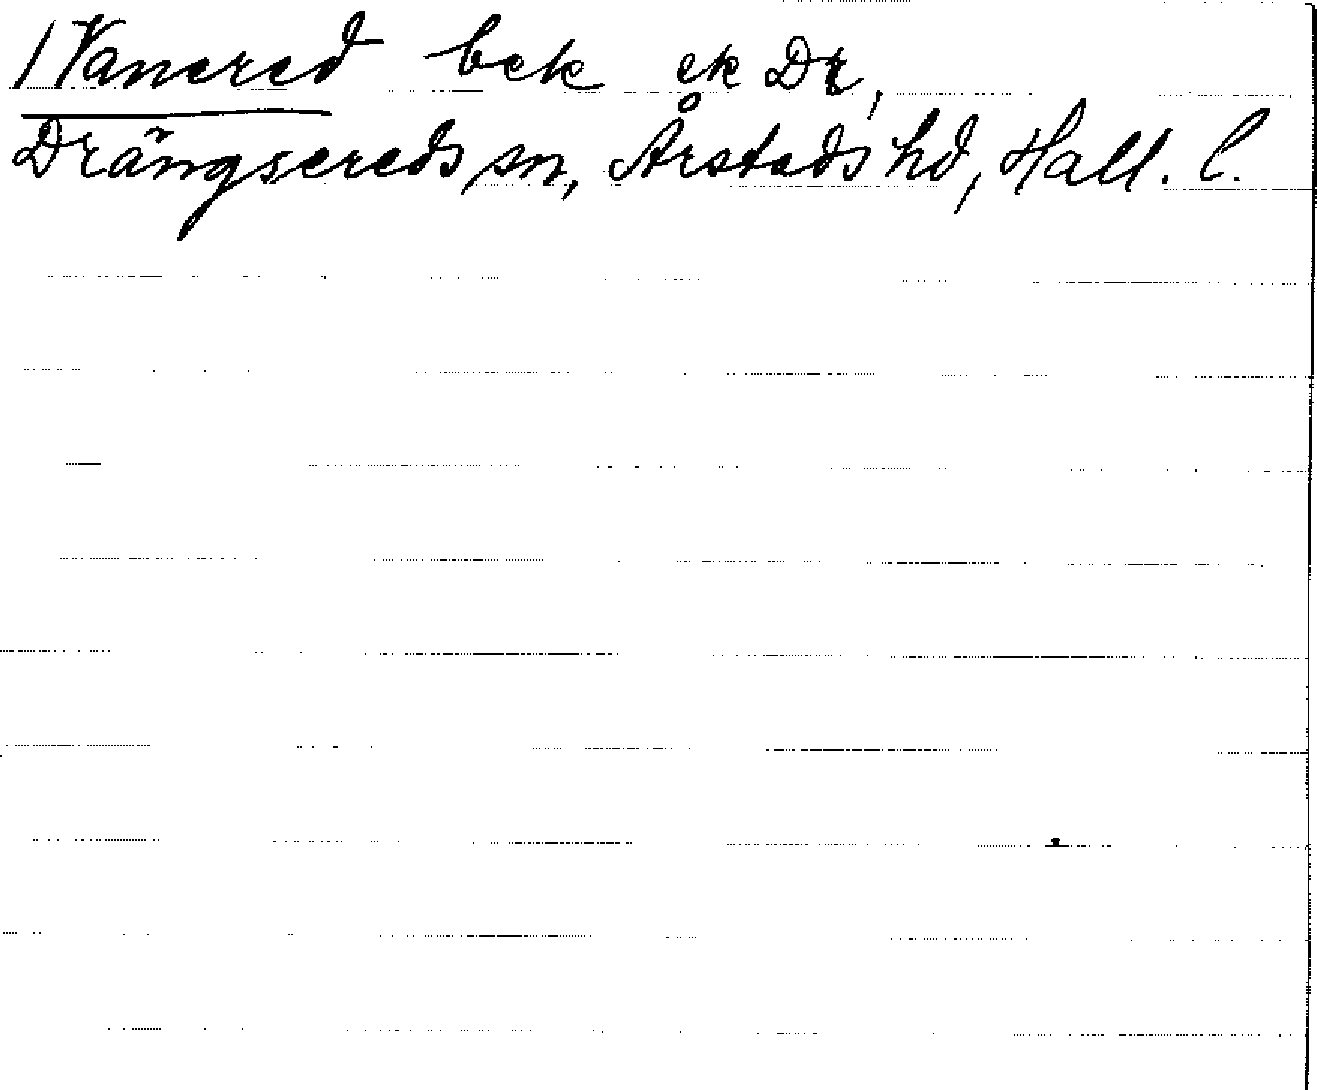 1 Vanered bek ek Dr,
Drängsereds sn, Årstads hd, Hall. l.